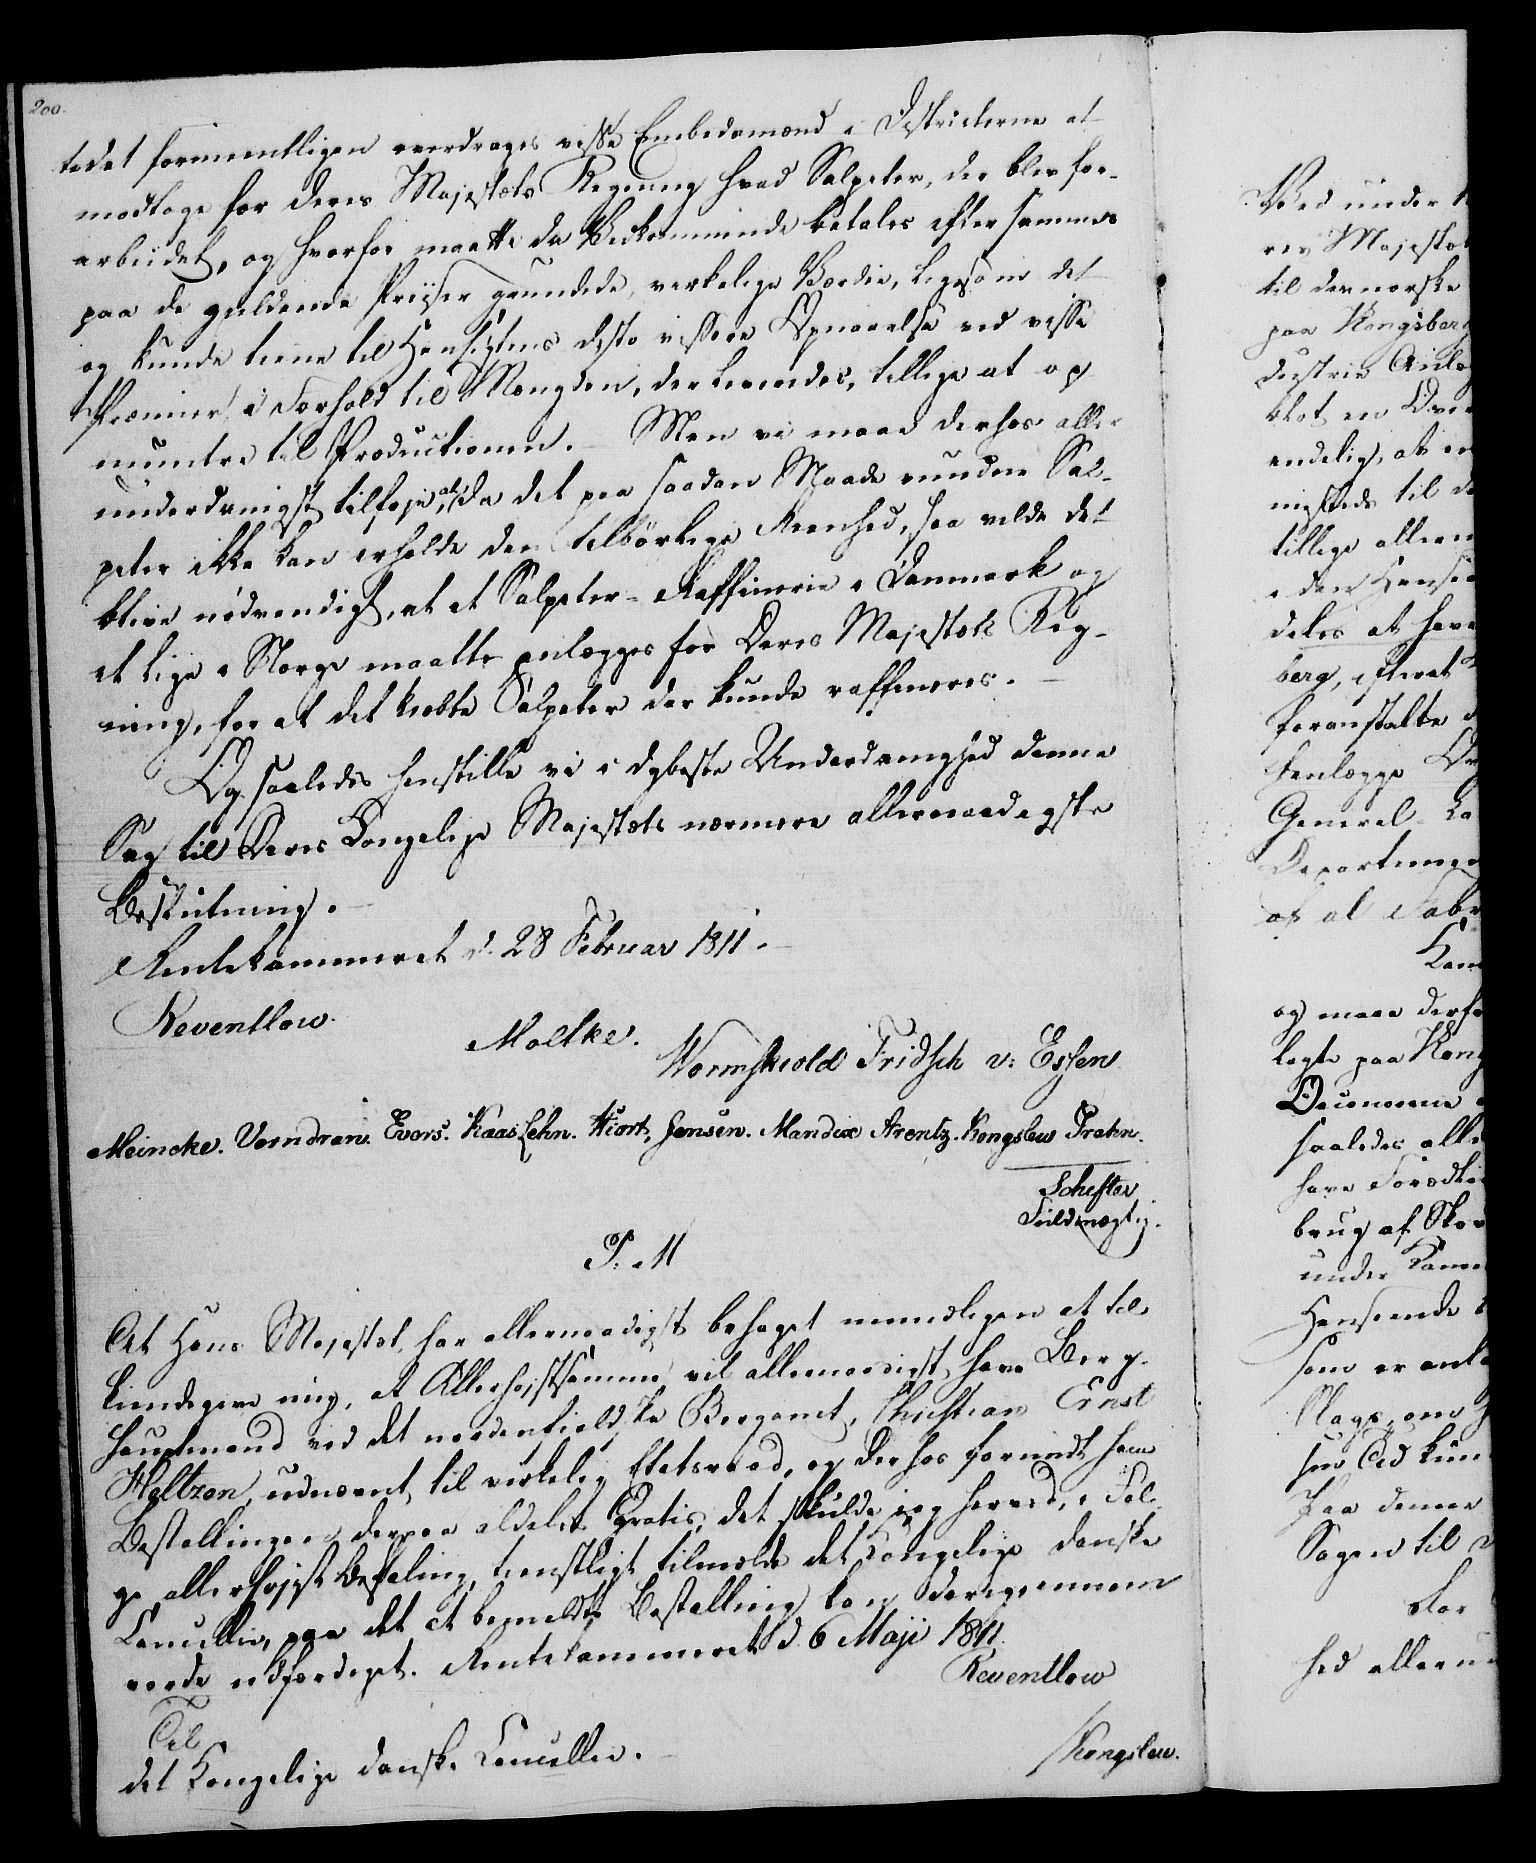 200.
tedet formentligen overdrages visse Embedsmænd i Districterne at
modtage for Deres Majestæts Regning hvad Salpeter, der blev for-
arbeidet, og hvorfor maatte da Vedkommende betales efter sammes
paa de gieldende Priiser grundede, verkelige Værdie, ligesom det
og kunde tiene til Hensigtens desto vissere Opnaaelse ved visse
Præmier i Forhold til Mængden, der leveredes, tillige at op
muntre til Productionen. Men vi maae derhos aller
underdanigst tilføje, at da det paa saadan Maade vundne Sal-
peter ikke kan erholde den tilbørlige Reenhed, saa vilde det
blive nødvendigt, at et Salpeter-Raffinerie i Danmark og
et lige i Norge maatte anlægges for Deres Majestæts Reg-
ning, for at det kiøbte Salpeter der kunde raffineres.
Og saaledes henstille vi i dybeste Underdanighed denne
Sag til Deres Kongelige Majestæts nærmere allernaadigste
Beslutning.
Rentekammeret d. 28 Februar 1811.
Reventlow.
Moltke.
Wormskiold Fridsch v: Essen
Meincke. Vorndran. Evers. Kaas Lehn. Hiort, Jensen. Mandix Arentz. Kongslew Prahn.
Schester
Fuldmægtig.
P. M
At Hans Majestæt har allernaadigst behaget mundligen at til-
kiendegive mig, at Allerhøjstsamme vil allernaadigst have Berg-
hauptmand ved det nordenfieldske Bergamt, Christian Ernst
Heltzen, udnævnt til virkelig Etatsraad, og derhos forundt ham
Bestallingen derpaa aldeles Gratis, det skulde jeg herved, i Føl-
ge allerhøjst Befaling, tienstligt tilmelde det Kongelige danske
Cancellie, paa det at bemeldte Bestalling kan derigiennem
vorde udfærdiget. Rentekammeret d. 6 Maji 1811.
Reventlow
Til
det Kongelige danske Cancellie.
/Kongslew.
Ved under
res Majestæt
til den norske
paa Kongsberg
dustrie Anlæg
endelig, at
tillige allern
deles at have
berg, efterat
foranstalte
General-
Departemen
af al Fabr
Kam
og maae derfo
lagte paa Kong
Oeconomie
saaledes alle
brug af Skov
under Kamm
Henseende
som er anl
Paa denne
Sagen til
hed alleru